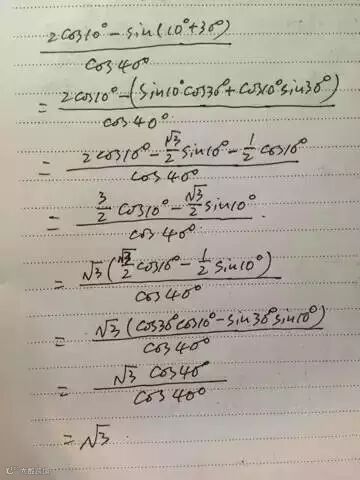 2cos10°-sin(10°+30°)
cos40°
= 2cos10°-(sin10°cos30°+cos10°sin30°)
cos40°
= 2cos10°-√3/2 sin10°-1/2 cos10°
cos40°
= 3/2 cos10°-√3/2 sin10°
cos40°
= √3(√3/2 cos10°-1/2 sin10°)
cos40°
= √3(cos30°cos10°-sin30°sin10°)
cos40°
= √3 cos40°
cos40°
=√3